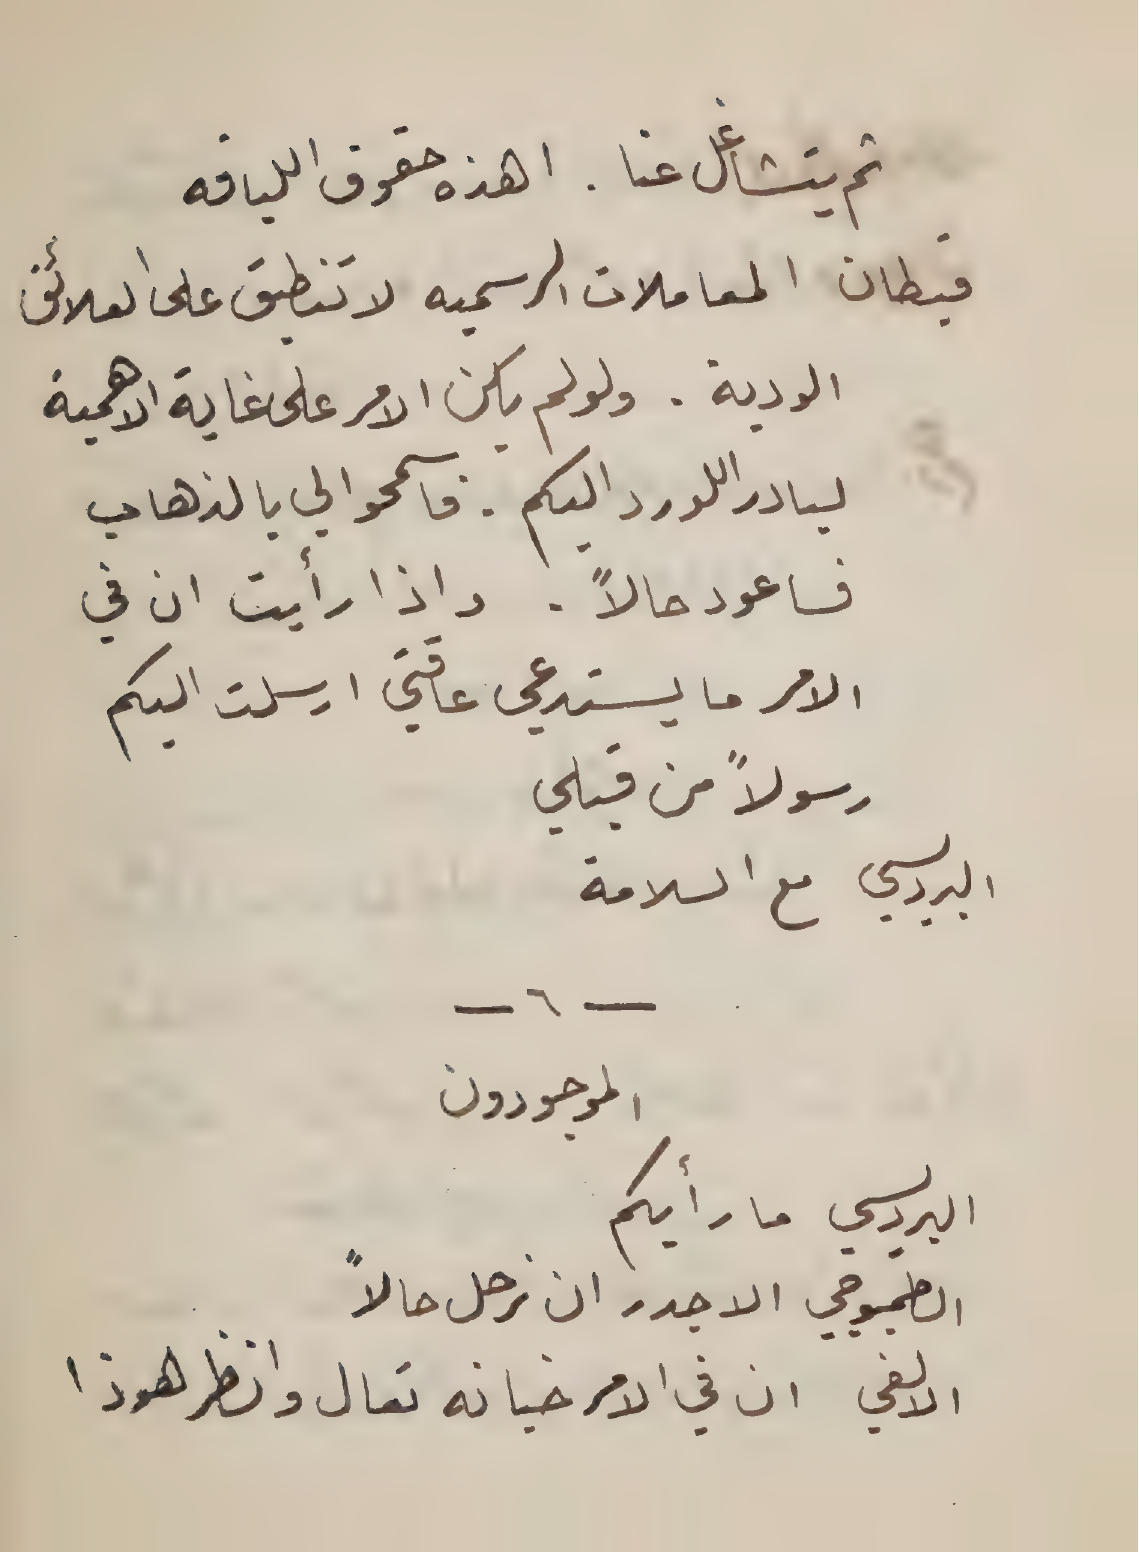 ثم يتشاغل عنا . اهذه حقوق اللياقه
قبطان المعاملات الرسميه لا تنطبق على العلائق
الودية . ولو لم يكن الامر على غاية الاهمية
لبادر اللورد اليكم . فاسمحوا لي بالذهاب
فساعود حالاً . واذا رأيت ان في
الامر ما يستدعي عاقتي ارسلت اليكم
رسولاً من قبلي
البرديسي مع السلامة
— ٦ —
الموجودون
البرديسي ما رأيكم
الطمبوجي الاجدر ان نرحل حالاً
الالفي ان في الامر خيانه تعال وانظر هوذا